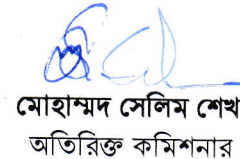 মোহাম্মদ সেলিম শেখ
অতিরিক্ত কমিশনার